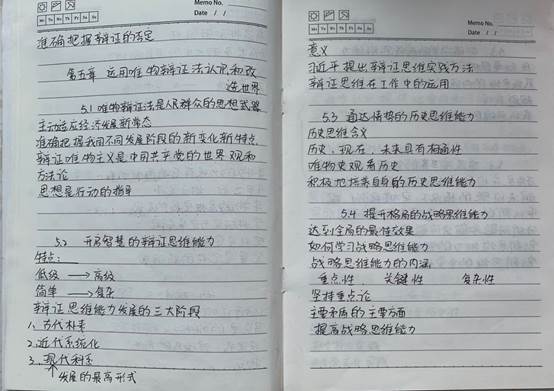 Memo No.
Date / /
Mo Tu We Th Fr Sa Su
准确把握辩证的否定
第五章 运用唯物辩证法认识和改
造世界
5.1 唯物辩证法是人民群众的思想武器
主动适应经济发展新常态
准确把握我国不同发展阶段的新变化新特点
辩证唯物主义是中国共产党的世界观和
方法论
思想是行动的指导
5.2 开启智慧的辩证思维能力
特点:
低级 → 高级
简单 → 复杂
辩证思维能力发展的三大阶段
1. 古代朴素
2. 近代系统化
3. 现代科学
发展的最高形式
Memo No.
Date / /
Mo Tu We Th Fr Sa Su
意义
习近平提出辩证思维实践方法
辩证思维在工作中的运用
5.3 通达情势的历史思维能力
历史思维含义
历史、现在、未来具有相通性
唯物史观看历史
积极培养自身的历史思维能力
5.4 提升格局的战略思维能力
达到全局的最佳效果
如何学习战略思维能力
战略思维能力的内涵
重点性 关键性 复杂性
坚持重点论
主要矛盾的主要方面
提高战略思维能力